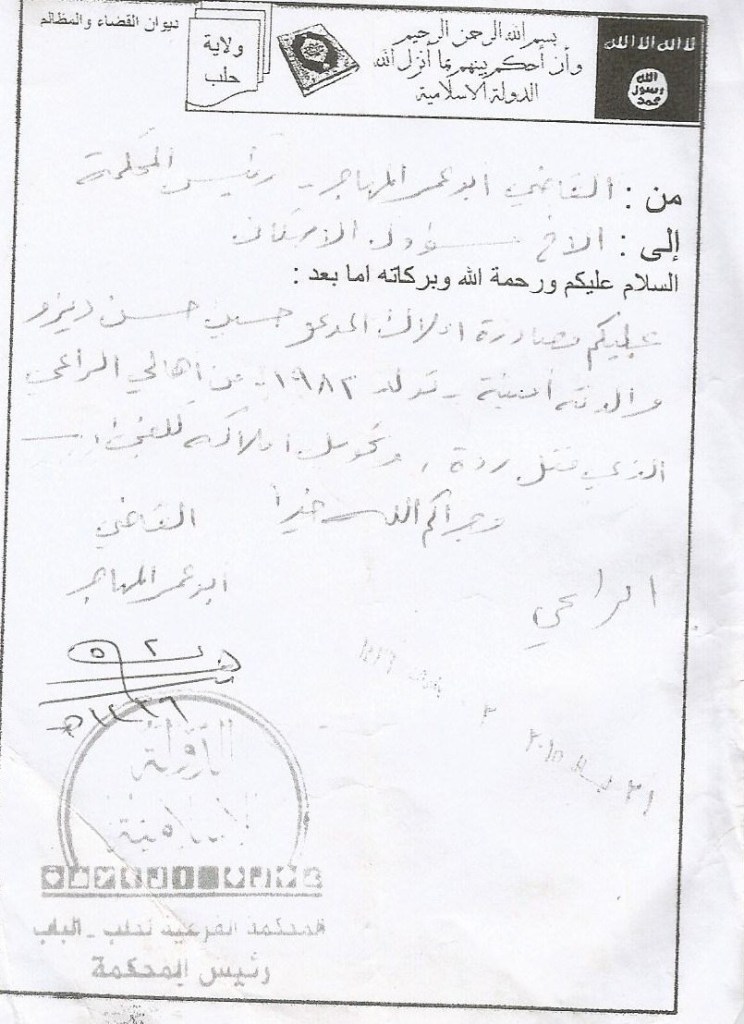 ديوان القضاء والمظالم
ولاية
حلب
بسم الله الرحمن الرحيم
وأن أحكم بينهم بما أنزل الله
الدولة الاسلامية
لا اله الا الله
الله
رسول
محمد
من : القاضي ابو عمر المهاجر - رئيس المحكمة
إلى : الاخ مسؤول
السلام عليكم ورحمة الله وبركاته اما بعد :
عليكم مصادرة املاك المدعو حسن
والدته امينة - تولد ١٩٨٢ - من اهالي الراعي
الذي قتل ردة , وتحويل املاكه
وجزاكم الله خيرا
القاضي
ابو عمر المهاجر
الراعي
٢ ٥
١٤٣٦ هـ
٢٠١٥
الدولة
الاسلامية
المحكمة الفرعية لحلب - الباب
رئيس المحكمة